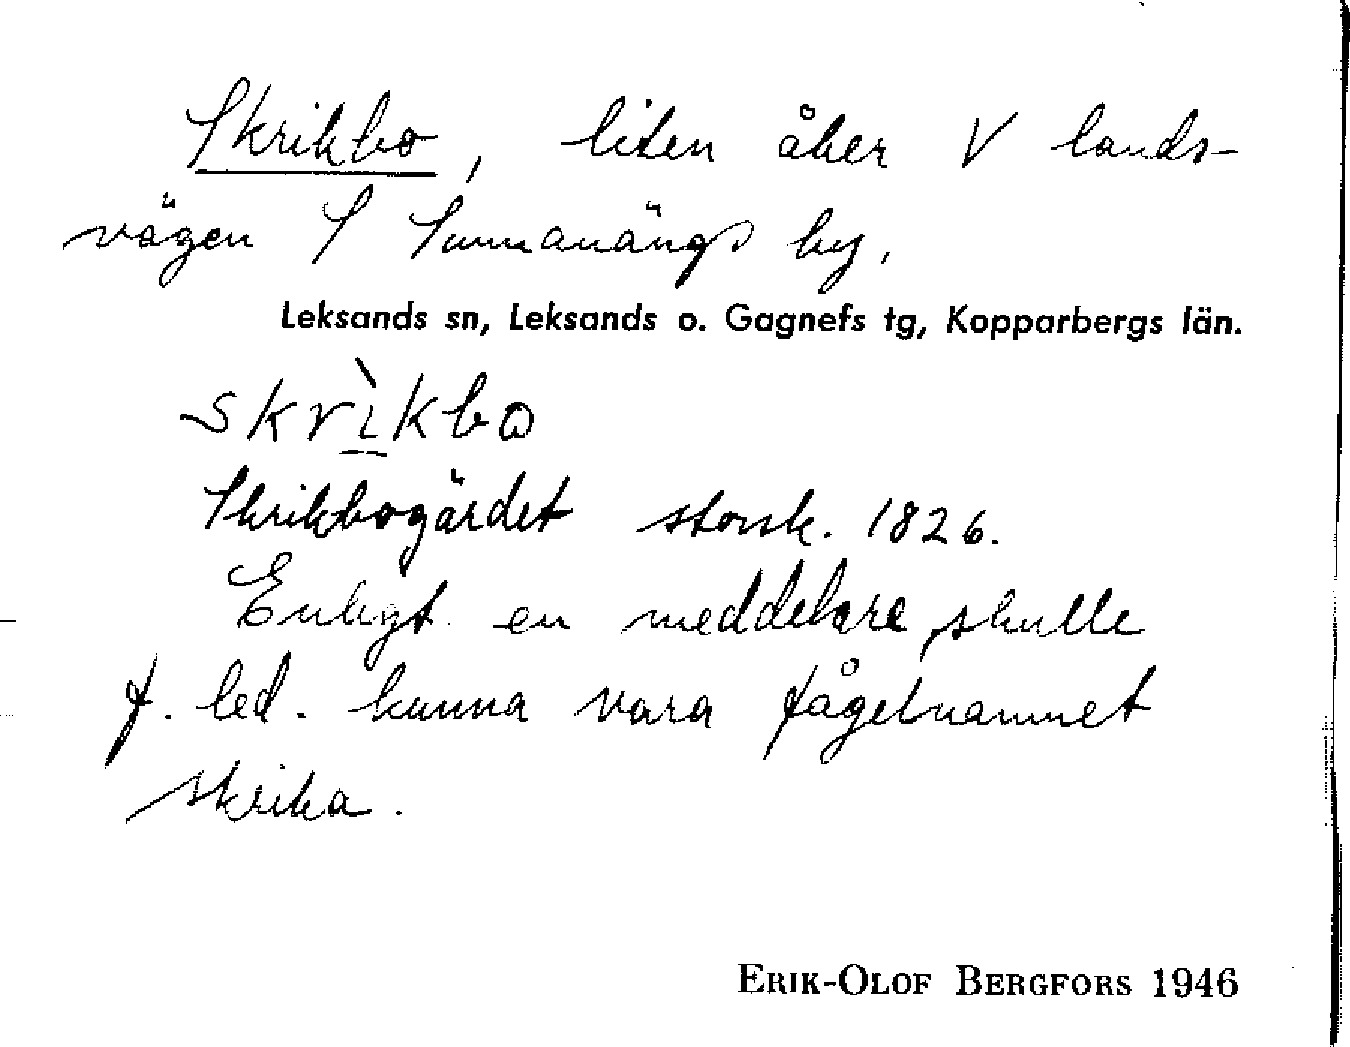 Skrikbo, liten åker V lands-
vägen S Sunnanängs by,
Leksands sn, Leksands o. Gagnefs tg, Kopparbergs län.
skrìkbo
Skrikbogärdet storsk. 1826.
Enligt en meddelare skulle
f. led. kunna vara fågelnamnet
skrika.
ERIK-OLOF BERGFORS 1946